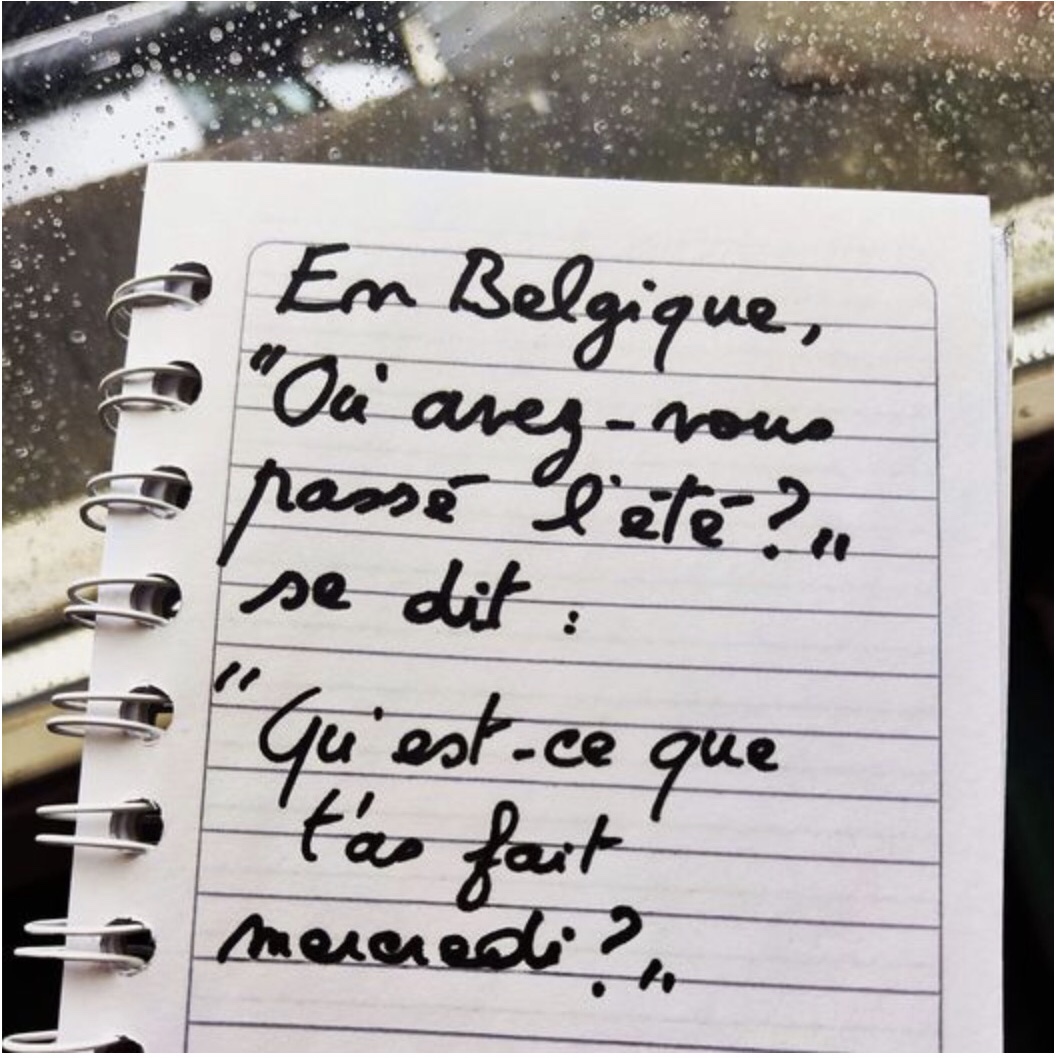 En Belgique,
"Où avez-vous
passé l'été?"
se dit :
"Qu'est-ce que
t'as fait
mercredi?"